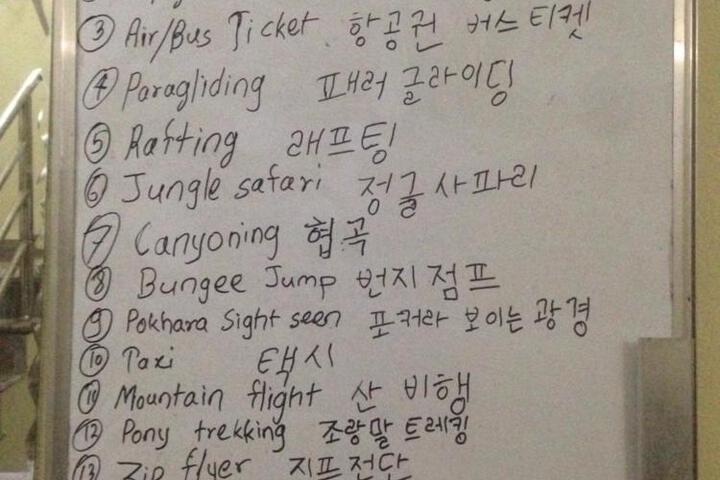 ③ Air/Bus Ticket 항공권 버스 티켓
④ Paragliding 패러글라이딩
⑤ Rafting 래프팅
⑥ Jungle safari 정글 사파리
⑦ Canyoning 협곡
⑧ Bungee Jump 번지 점프
⑨ Pokhara Sight seen 포커라 보이는 광경
⑩ Taxi 택시
⑪ Mountain flight 산 비행
⑫ Pony trekking 조랑말 트레킹
⑬ Zip flyer 지프 전단